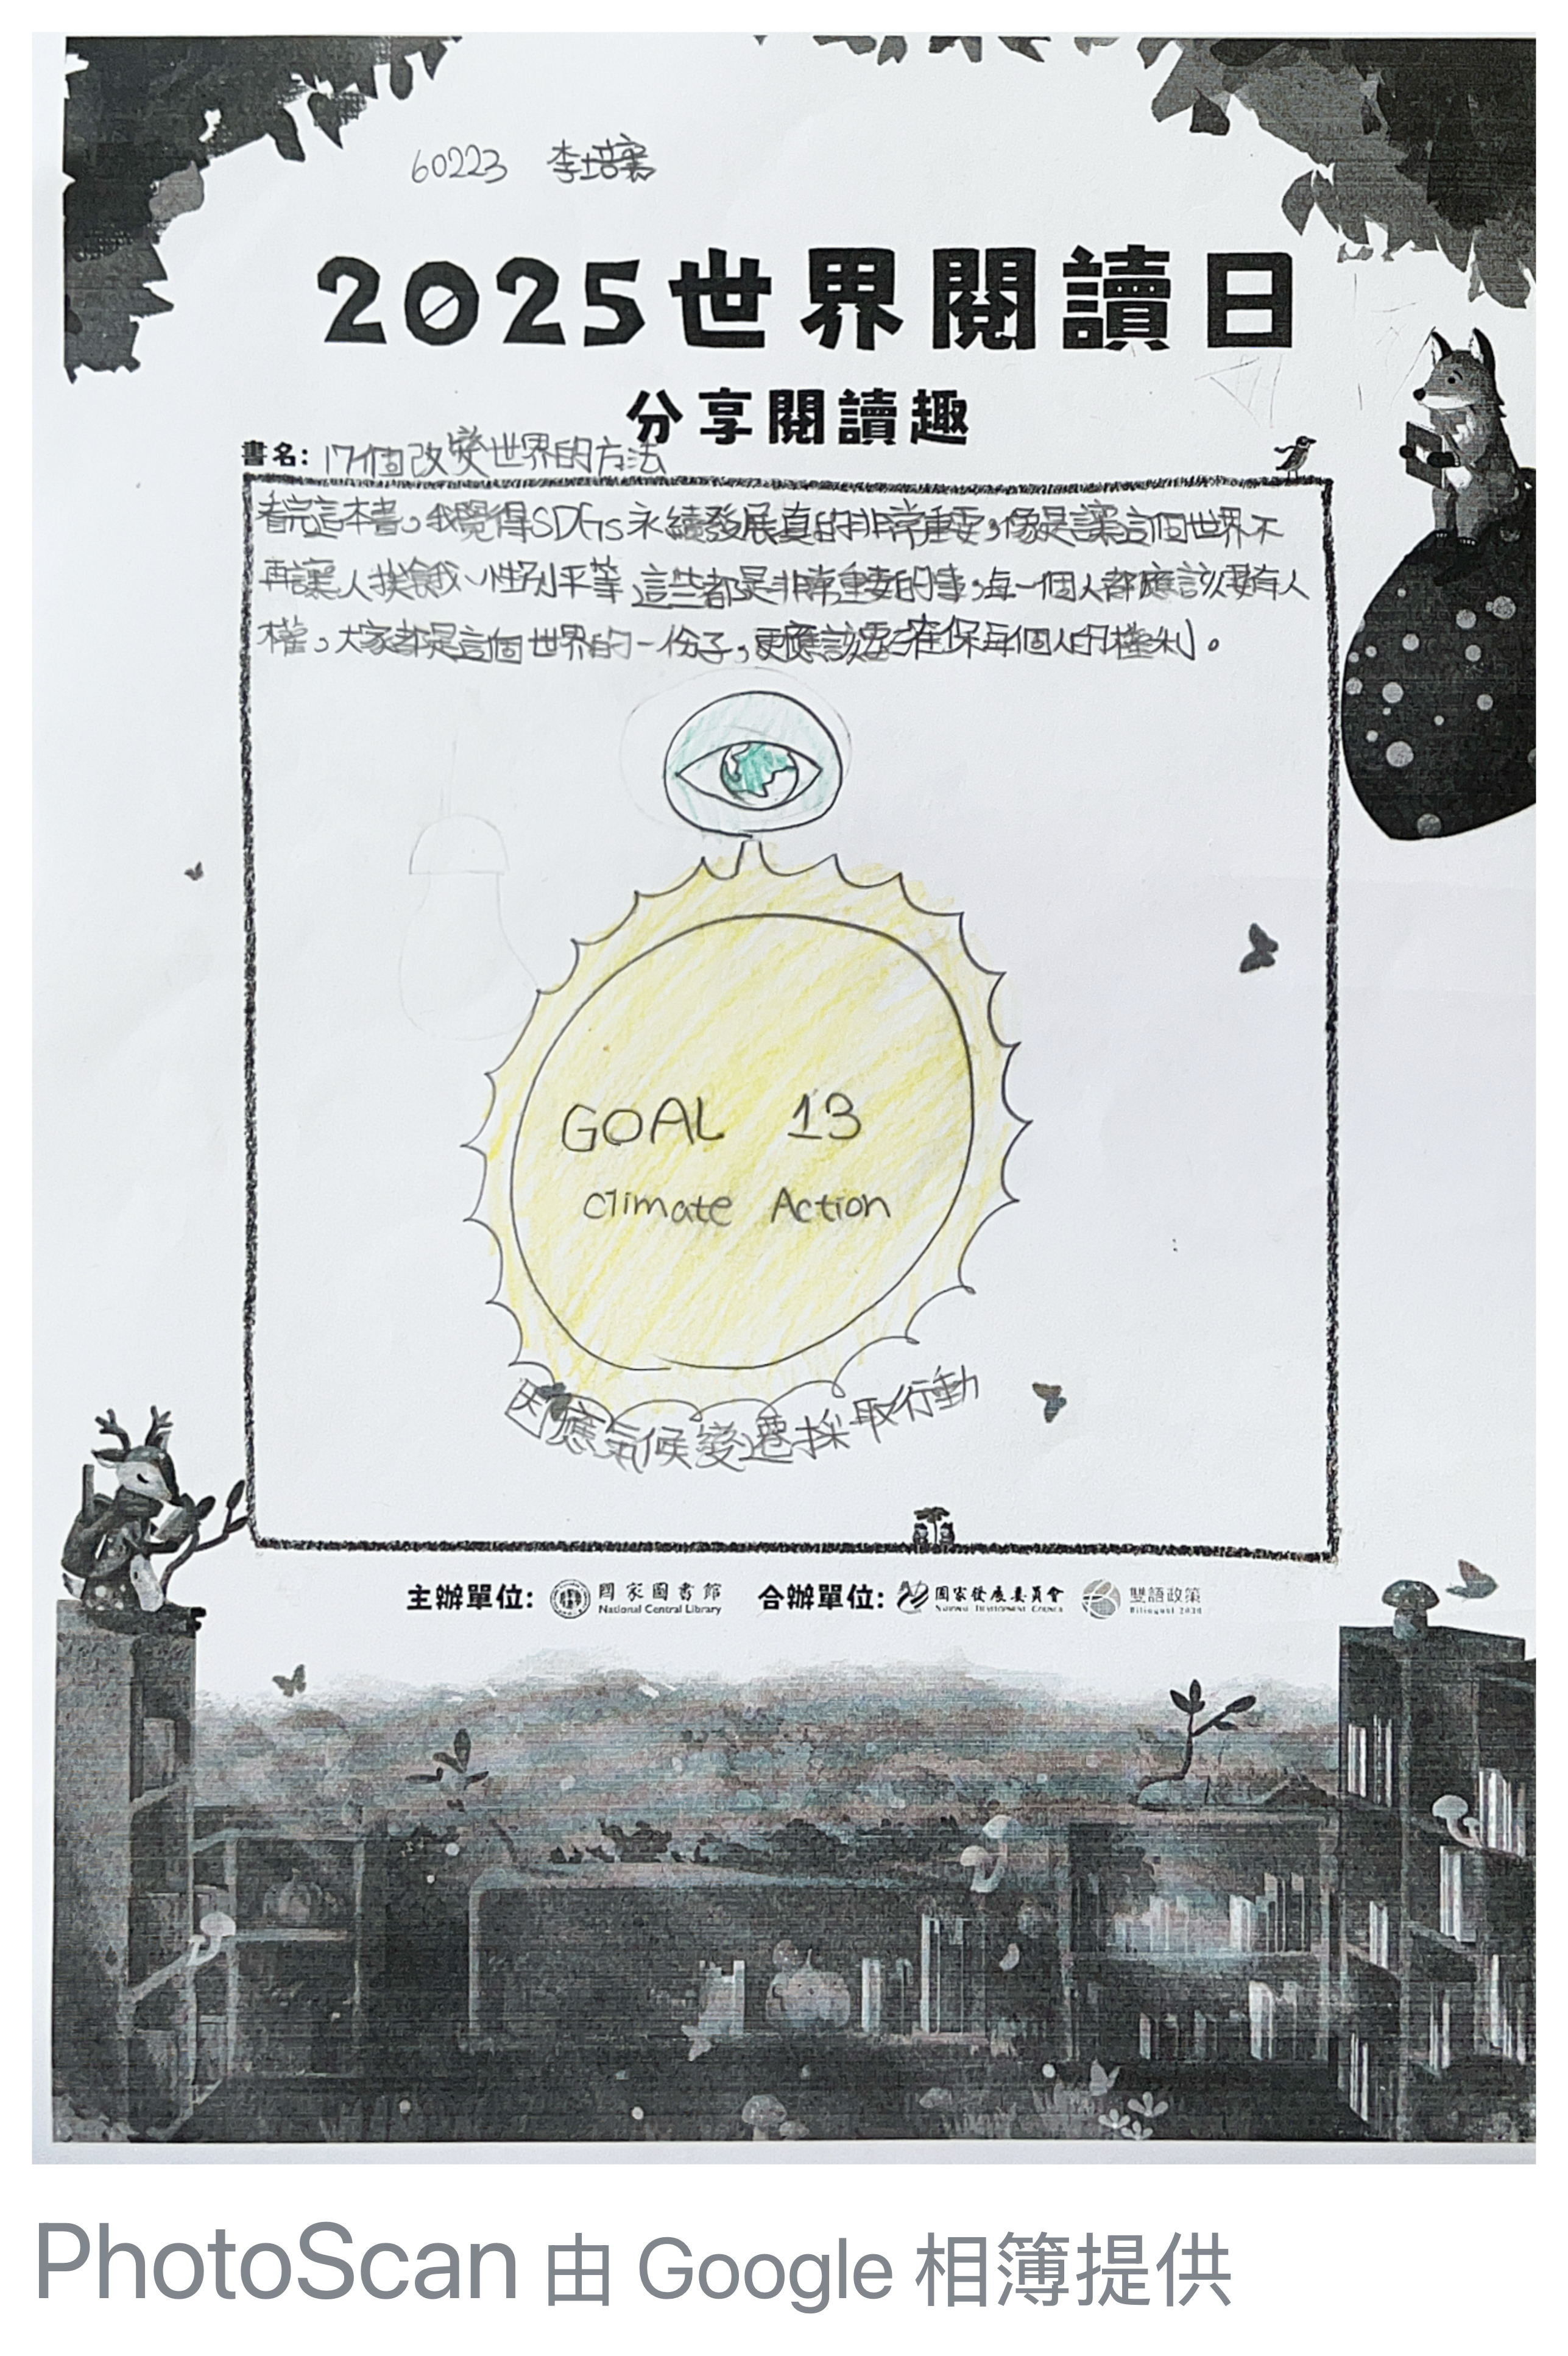 60223 李培寰
2025世界閱讀日
分享閱讀趣
書名: 17個改變世界的方法
看完這本書,我覺得SDGs永續發展真的非常重要,像是讓這個世界不
再讓人挨餓、性別平等 這些都是非常重要的事,每一個人都應該要有人
權,大家都是這個世界的一份子,更應該要確保每個人的權利。
GOAL 13
Climate Action
因應氣候變遷採取行動
主辦單位: 國家圖書館 National Central Library 合辦單位: 國家發展委員會 National Development Council 雙語政策 Bilingual 2030
PhotoScan 由 Google 相簿提供